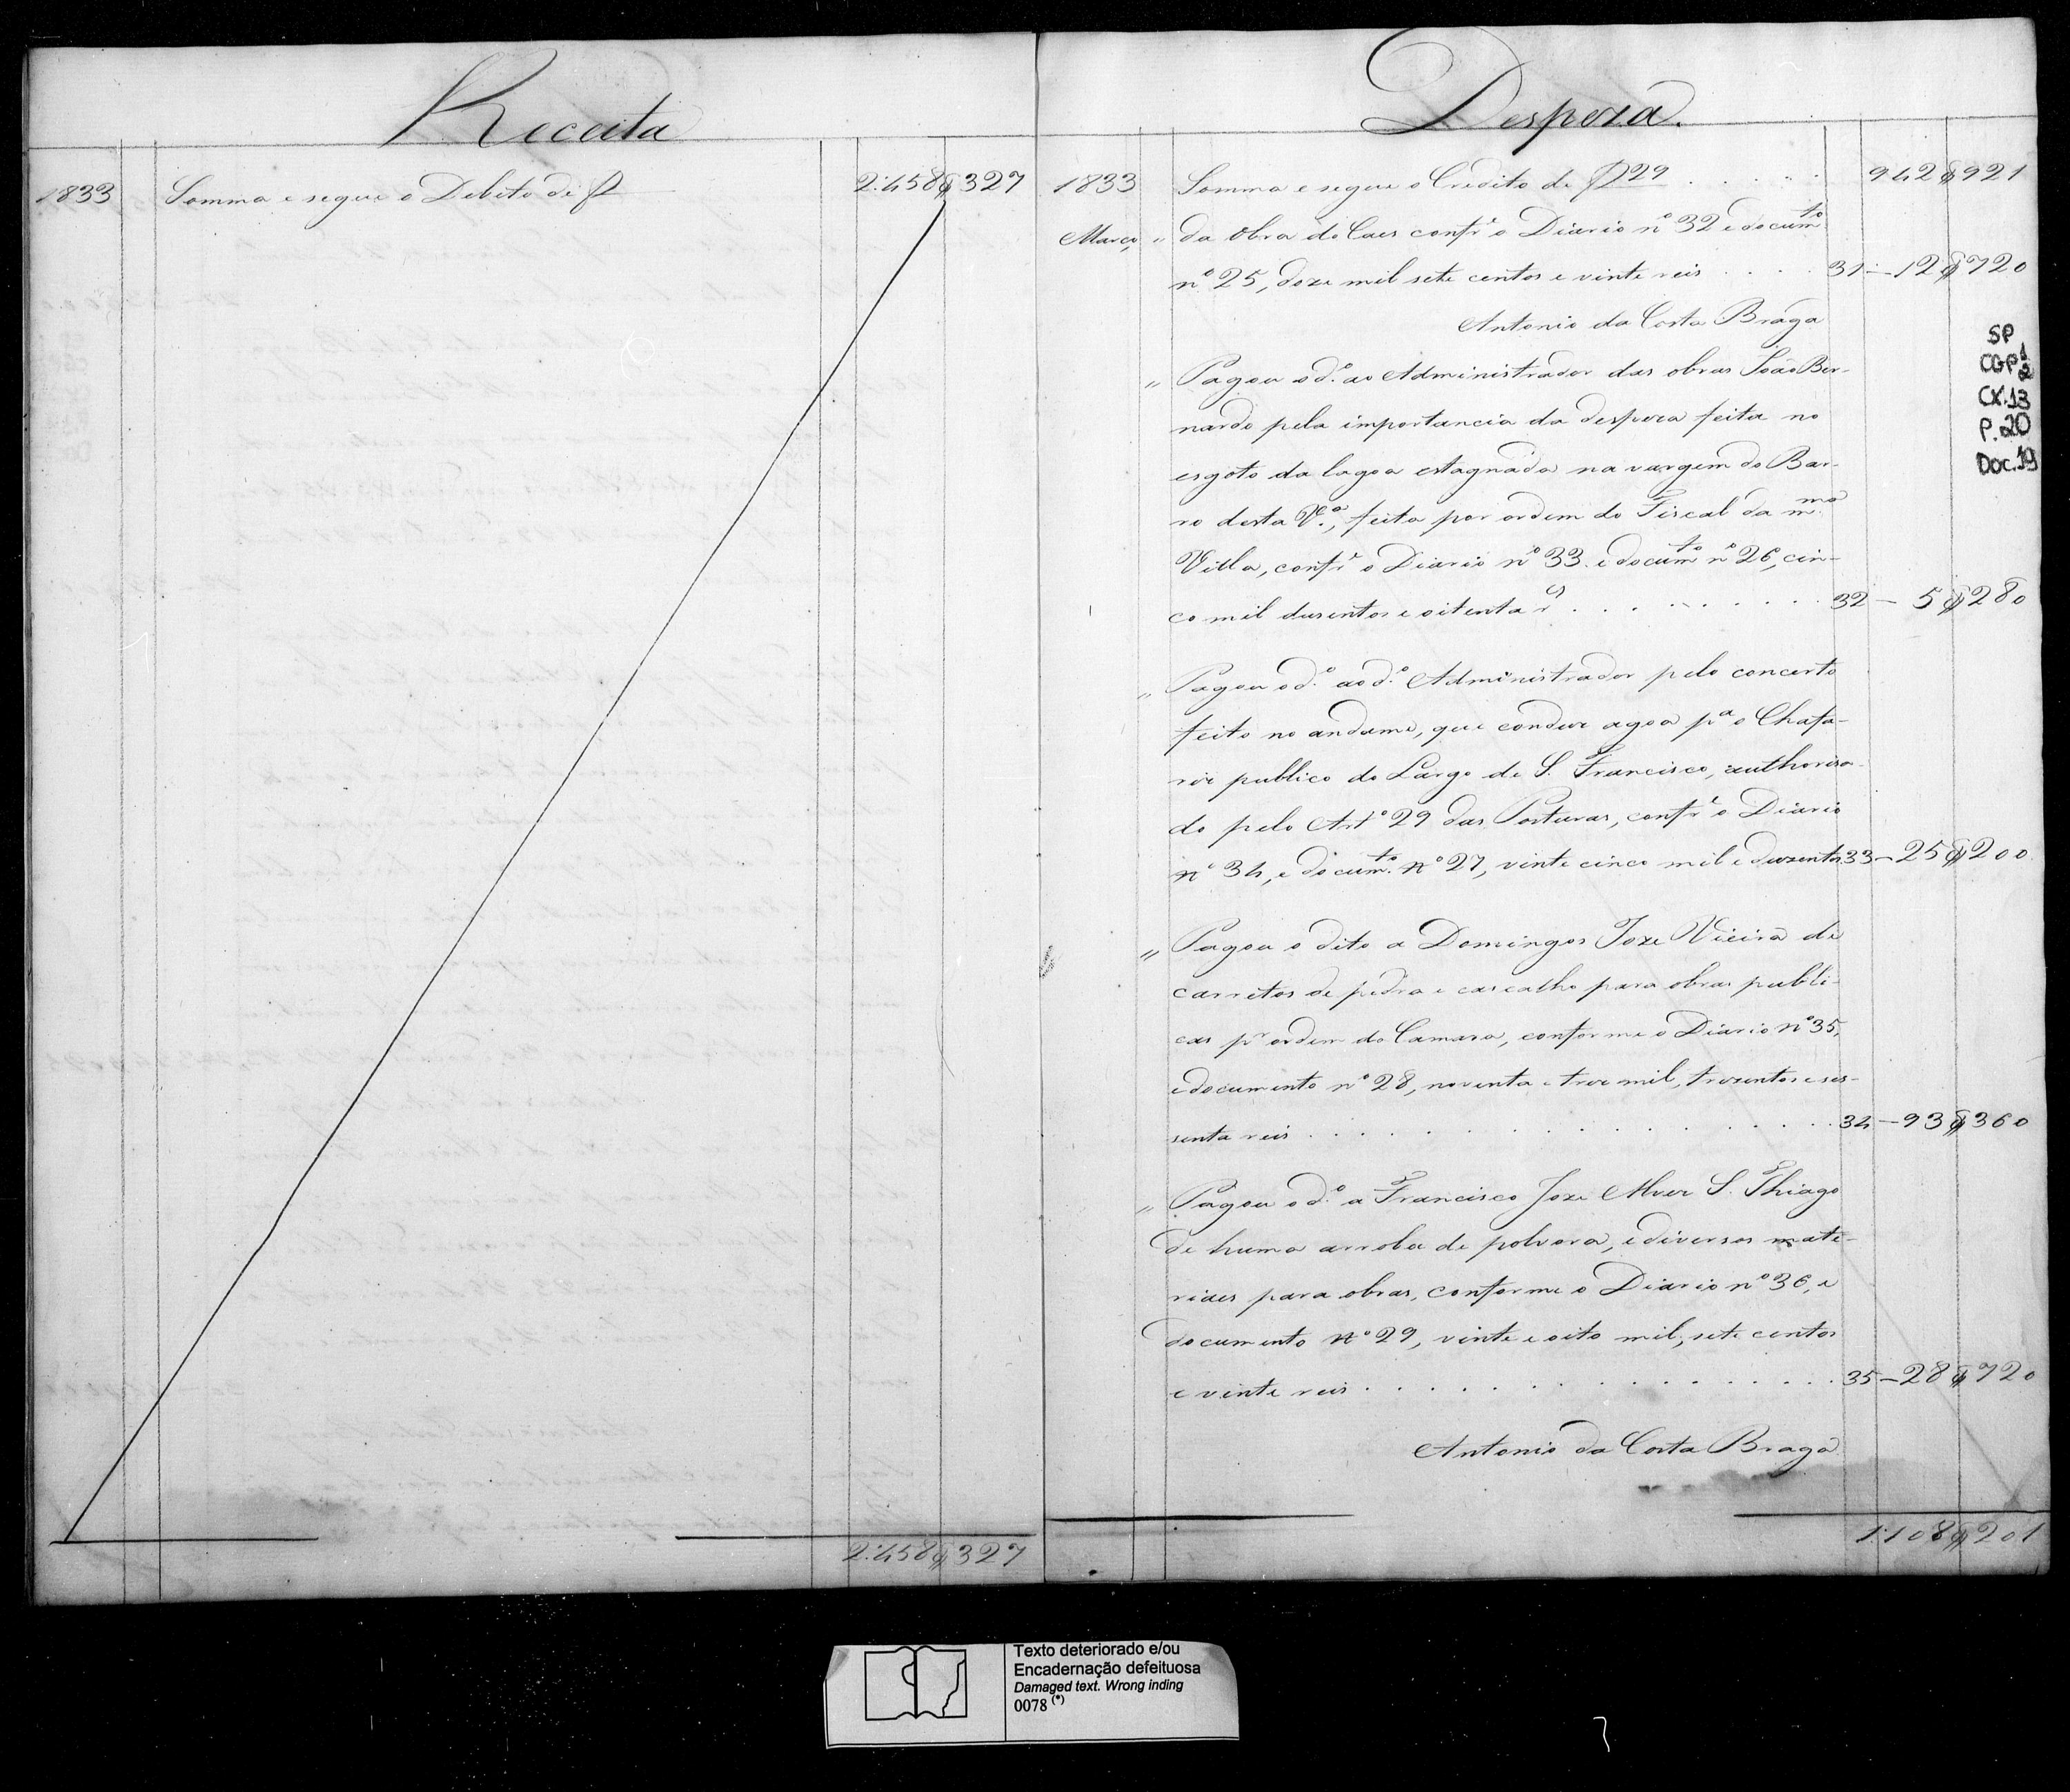 Receita
1833 Somma e segue o Debito de f 2:458$327
2:458$327
Despeza.
1833 Somma e segue o Credito de f 29 . . . . . 942$921
Março " da obra do Caes confr.e o Diario nº 32 e docum.to
nº 25, doze mil sete centos e vinte reis . . . . 31 — 12$720
Antonio da Costa Braga
" Pagou o d.o ao Administrador das obras João Ber-
nardo pela importancia da despeza feita no
esgoto da lagoa estagnada na vargem do Bar-
ro desta V.a, feita por ordem do Fiscal da m.ma
Villa, confr.e o Diario nº 33. e docum.to nº 26, cin-
co mil dusentos e oitenta r.s . . . . . . . . . 32 — 5$280
" Pagou o d.o ao d.o Administrador pelo concerto
feito no andame, que conduz agoa p.a o Chafa-
riz publico do Largo de S. Francisco, authorisa-
do pelo Artº 29 das Posturas, confr.e o Diario
nº 34, e docum.to nº 27, vinte cinco mil e duzentos 33 — 25$200
" Pagou o dito a Domingos Joze Vieira de
carretos de pedra e cascalho para obras publi-
cas p.r ordem da Camara, conforme o Diario nº 35,
e documento nº 28, noventa e trez mil, trezentos e ses-
senta reis . . . . . . . . . . . . . . 34 — 93$360
" Pagou o d.o a Francisco Joze Alvez S. Thiago
de huma arroba de polvora, e diversos mate-
riaes para obras, conforme o Diario nº 36, e
documento nº 29, vinte e oito mil, sete centos
e vinte reis . . . . . . . . . . . . . 35 — 28$720
Antonio da Costa Braga
1:108$201
SP
CGP1
2
CX.13
P.20
Doc.19
Texto deteriorado e/ou
Encadernação defeituosa
Damaged text. Wrong inding
0078 (*)